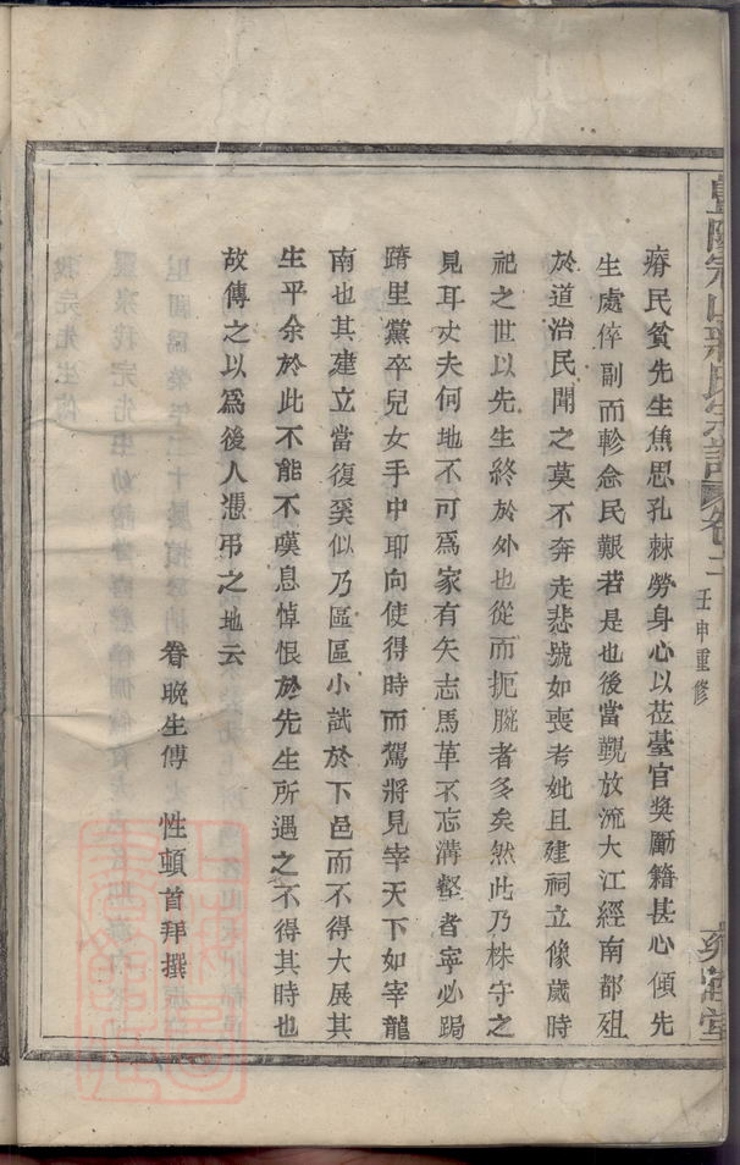 卷二
壬申重修
瘠民貧先生焦思孔棘勞身心以莅臺官奬勵籍甚心傾先
生處倅副而軫念民艱若是也後當覲放流大江經南都殂
於道治民聞之莫不奔走悲號如喪考妣且建祠立像歲時
祀之世以先生終於外也從而扼腕者多矣然此乃株守之
見耳丈夫何地不可爲家有矢志馬革不忘溝壑者寧必跼
蹐里黨卒兒女手中耶向使得時而駕將見宰天下如宰龍
南也其建立當復奚似乃區區小試於下邑而不得大展其
生平余於此不能不嘆息悼恨於先生所遇之不得其時也
故傳之以爲後人憑弔之地云
眷晚生傅　性頓首拜撰